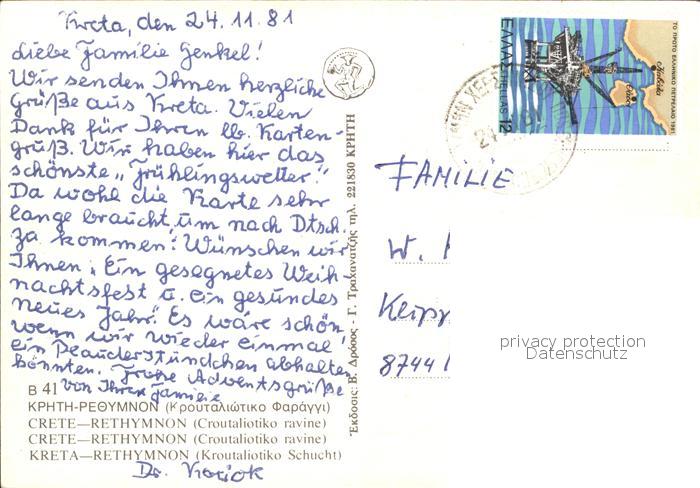 Kreta, den 24.11.81
Liebe Familie Genkel!
Wir senden Ihnen herzliche
Grüße aus Kreta. Vielen
Dank für Ihren lb. Karten-
gruß. Wir haben hier das
schönste „Frühlingswetter."
Da wohl die Karte sehr
lange braucht, um nach Dtsch.
zu kommen. Wünschen wir
Ihnen: Ein gesegnetes Weih
nachtsfest u. ein gesundes
neues Jahr. Es wäre schön,
wenn wir wieder einmal
ein Plauderstündchen abhalten
könnten. Frohe Adventsgrüße
von Ihrer Familie
Dr.
B 41
ΚΡΗΤΗ-ΡΕΘΥΜΝΟΝ (Κρουταλιώτικο Φαράγγι)
CRETE—RETHYMNON (Croutaliotiko ravine)
CRETE—RETHYMNON (Croutaliotiko ravine)
KRETA—RETHYMNON (Kroutaliotiko Schucht)
Ἐκδοσις: Β. Δρόσος - Γ. Τραχανατζῆς τηλ. 221830 ΚΡΗΤΗ
ΕΛΛΑΣ HELLAS 12
ΤΟ ΠΡΩΤΟ ΕΛΛΗΝΙΚΟ ΠΕΤΡΕΛΑΙΟ 1981
Καβάλα
Θάσος
FAMILIE
W.
8744
privacy protection
Datenschutz